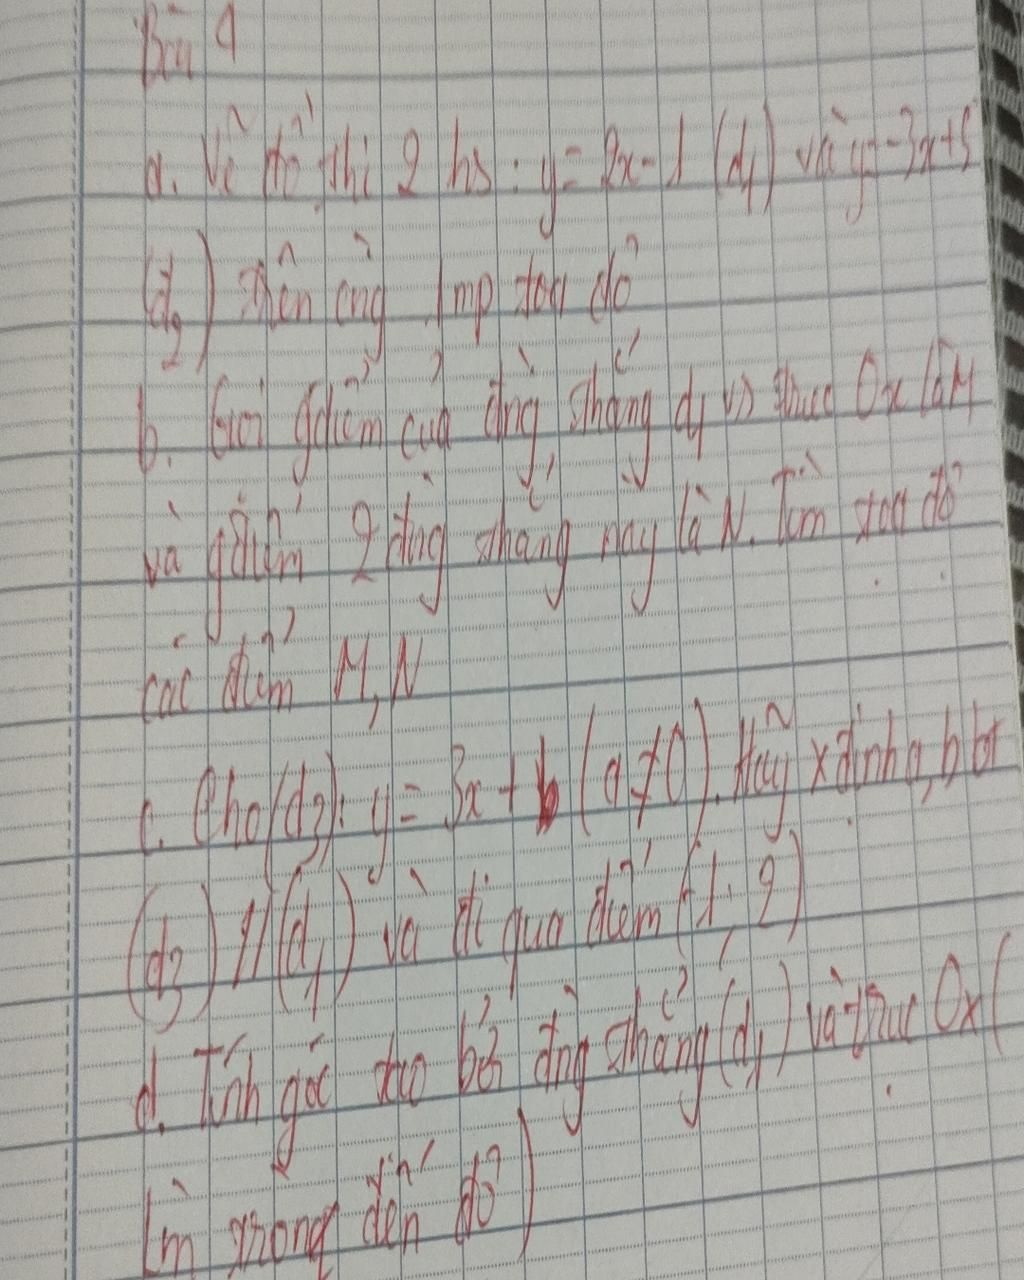 Bài 4
a. Vẽ đồ thị 2 hs : y = 2x - 1 (d₁) và y = -3x + 5
(d₂) trên cùng 1 mp toạ độ
b. Gọi gđiểm của đng thẳng d₁ vs trục Ox là M
và gđiểm 2 đng thẳng này là N. Tìm toạ độ
các điểm M, N
c. Cho (d₃): y = 3x + b (a ≠ 0). Hãy xđịnh a, b bt
(d₃) // (d₁) và đi qua điểm (-1; 2)
d. Tính góc tạo bởi đng thẳng (d₁) và trục Ox (
làm tròn đến độ)